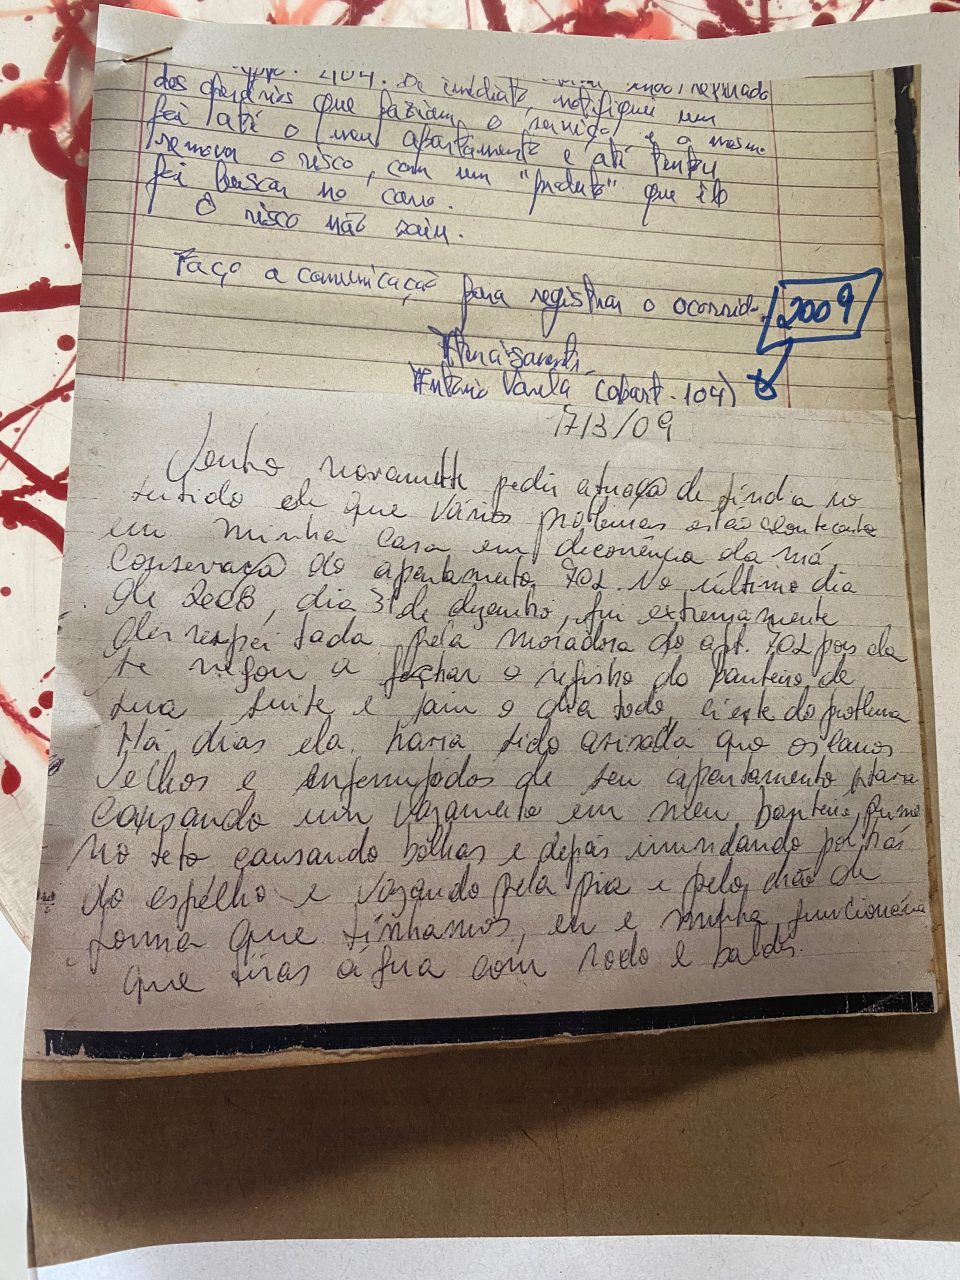 404. De imediato, notifiquei um
dos operários que faziam o serviço, e o mesmo
foi até o meu apartamento e até tentou
remover o risco, com um "produto" que ele
foi buscar no carro.
O risco não saiu.
Faço a comunicação para registrar o ocorrido.
2009
Antonio Varela (apart. 104)
17/3/09
Venho novamente pedir atuação de síndia no
sentido de que vários problemas estão acontecendo
em minha casa em decorrência da má
conservação do apartamento 702. No último dia
de 2008, dia 31 de dezembro, fui extremamente
desrespeitada pela moradora do apt. 702 pois ela
se negou a fechar o registro do banheiro de
sua suite e saiu o dia todo, ciente do problema
Há dias ela havia sido avisada que os canos
velhos e enferrujados de seu apartamento estava
causando um vazamento em meu banheiro, primeiro
no teto causando bolhas e depois inundando por trás
do espelho e vazando pela pia e pelo chão de
forma que tínhamos, eu e minha funcionária
que tirar água com rodo e baldes.